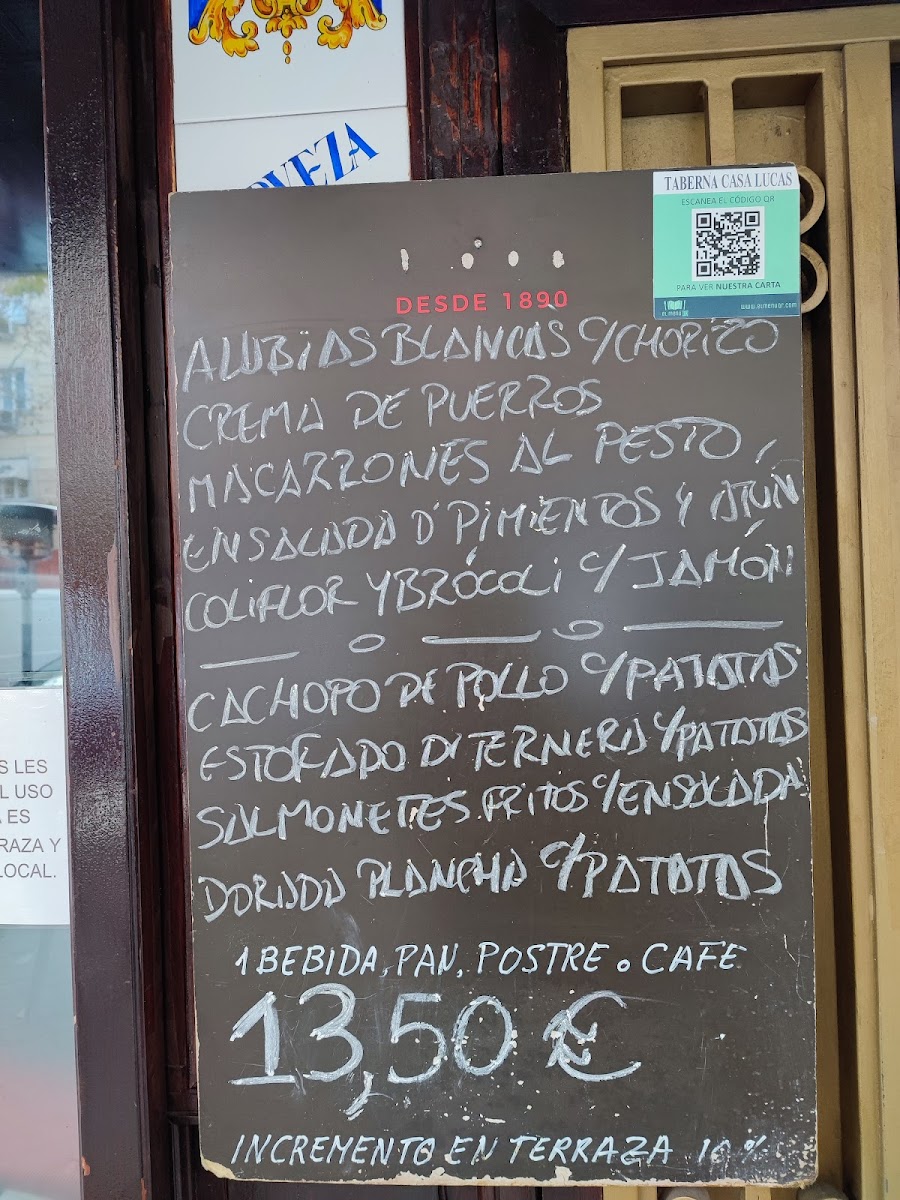 RVEZA
TABERNA CASA LUCAS
ESCANEA EL CÓDIGO QR
PARA VER NUESTRA CARTA
DESDE 1890
ALUBIAS BLANCAS C/CHORIZO
CREMA DE PUERROS
MACARRONES AL PESTO
ENSALADA D'PIMIENTOS Y ATÚN
COLIFLOR Y BRÓCOLI C/JAMÓN
CACHOPO DE POLLO C/PATATAS
ESTOFADO D'TERNERA Y/PATATAS
SALMONETES FRITOS C/ENSALADA
DORADA PLANCHA C/PATATAS
1 BEBIDA, PAN, POSTRE o CAFE
13,50 €
INCREMENTO EN TERRAZA 10 %
S LES
L USO
A ES
RAZA Y
LOCAL.